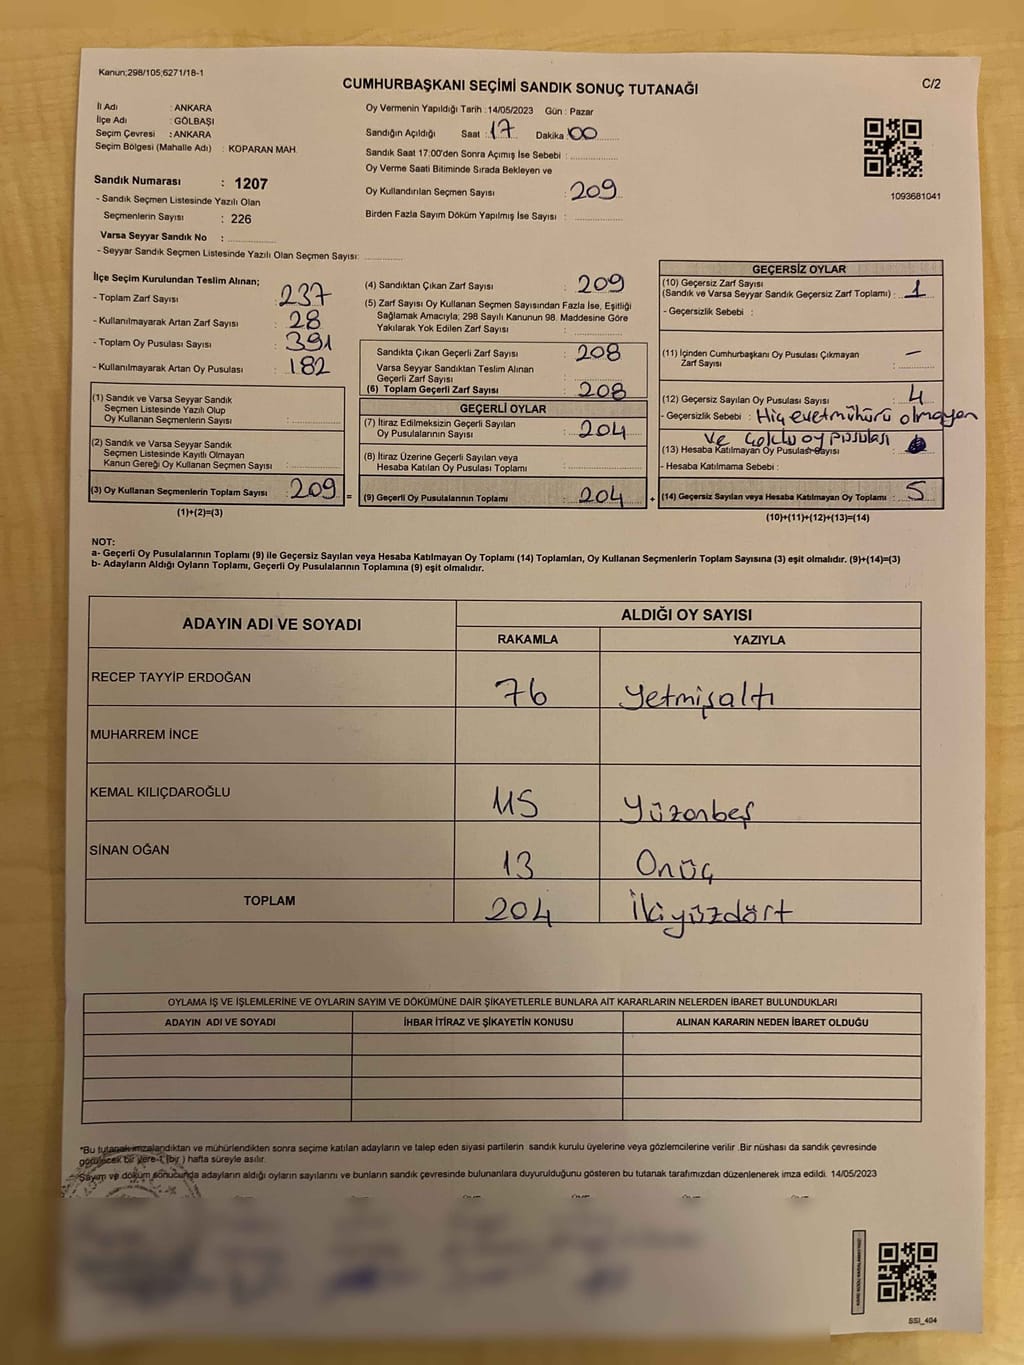 Kanun;298/105;6271/18-1
CUMHURBAŞKANI SEÇİMİ SANDIK SONUÇ TUTANAĞI
C/2
İl Adı : ANKARA
İlçe Adı : GÖLBAŞI
Seçim Çevresi : ANKARA
Seçim Bölgesi (Mahalle Adı) : KOPARAN MAH.
Sandık Numarası : 1207
- Sandık Seçmen Listesinde Yazılı Olan
Seçmenlerin Sayısı : 226
Varsa Seyyar Sandık No :
- Seyyar Sandık Seçmen Listesinde Yazılı Olan Seçmen Sayısı:
Oy Vermenin Yapıldığı Tarih :14/05/2023 Gün : Pazar
Sandığın Açıldığı Saat : 17 Dakika : 00
Sandık Saat 17:00'den Sonra Açımış İse Sebebi :
Oy Verme Saati Bitiminde Sırada Bekleyen ve
Oy Kullandırılan Seçmen Sayısı : 209
Birden Fazla Sayım Döküm Yapılmış İse Sayısı :
1093681041
İlçe Seçim Kurulundan Teslim Alınan;
- Toplam Zarf Sayısı : 237
- Kullanılmayarak Artan Zarf Sayısı : 28
- Toplam Oy Pusulası Sayısı : 391
- Kullanılmayarak Artan Oy Pusulası : 182
(1) Sandık ve Varsa Seyyar Sandık
Seçmen Listesinde Yazılı Olup
Oy Kullanan Seçmenlerin Sayısı :
(2) Sandık ve Varsa Seyyar Sandık
Seçmen Listesinde Kayıtlı Olmayan
Kanun Gereği Oy Kullanan Seçmen Sayısı :
(3) Oy Kullanan Seçmenlerin Toplam Sayısı : 209 =
(1)+(2)=(3)
(4) Sandıktan Çıkan Zarf Sayısı : 209
(5) Zarf Sayısı Oy Kullanan Seçmen Sayısından Fazla İse, Eşitliği
Sağlamak Amacıyla; 298 Sayılı Kanunun 98. Maddesine Göre
Yakılarak Yok Edilen Zarf Sayısı :
Sandıkta Çıkan Geçerli Zarf Sayısı : 208
Varsa Seyyar Sandıktan Teslim Alınan
Geçerli Zarf Sayısı :
(6) Toplam Geçerli Zarf Sayısı : 208
GEÇERLİ OYLAR
(7) İtiraz Edilmeksizin Geçerli Sayılan
Oy Pusulalarının Sayısı : 204
(8) İtiraz Üzerine Geçerli Sayılan veya
Hesaba Katılan Oy Pusulası Toplamı :
(9) Geçerli Oy Pusulalarının Toplamı : 204 +
GEÇERSİZ OYLAR
(10) Geçersiz Zarf Sayısı
(Sandık ve Varsa Seyyar Sandık Geçersiz Zarf Toplamı) : 1
- Geçersizlik Sebebi :
(11) İçinden Cumhurbaşkanı Oy Pusulası Çıkmayan
Zarf Sayısı : –
(12) Geçersiz Sayılan Oy Pusulası Sayısı : 4
- Geçersizlik Sebebi : Hiç evet mühürü olmayan
ve çoklu oy pusulası
(13) Hesaba Katılmayan Oy Pusulası Sayısı
- Hesaba Katılmama Sebebi :
(14) Geçersiz Sayılan veya Hesaba Katılmayan Oy Toplamı : 5
(10)+(11)+(12)+(13)=(14)
NOT:
a- Geçerli Oy Pusulalarının Toplamı (9) ile Geçersiz Sayılan veya Hesaba Katılmayan Oy Toplamı (14) Toplamları, Oy Kullanan Seçmenlerin Toplam Sayısına (3) eşit olmalıdır. (9)+(14)=(3)
b- Adayların Aldığı Oyların Toplamı, Geçerli Oy Pusulalarının Toplamına (9) eşit olmalıdır.
ADAYIN ADI VE SOYADI
ALDIĞI OY SAYISI
RAKAMLA YAZIYLA
RECEP TAYYİP ERDOĞAN 76 Yetmişaltı
MUHARREM İNCE
KEMAL KILIÇDAROĞLU 115 Yüzonbeş
SİNAN OĞAN 13 Onüç
TOPLAM 204 İkiyüzdört
OYLAMA İŞ VE İŞLEMLERİNE VE OYLARIN SAYIM VE DÖKÜMÜNE DAİR ŞİKAYETLERLE BUNLARA AİT KARARLARIN NELERDEN İBARET BULUNDUKLARI
ADAYIN ADI VE SOYADI İHBAR İTİRAZ VE ŞİKAYETİN KONUSU ALINAN KARARIN NEDEN İBARET OLDUĞU
*Bu tutanak imzalandıktan ve mühürlendikten sonra seçime katılan adayların ve talep eden siyasi partilerin sandık kurulu üyelerine veya gözlemcilerine verilir .Bir nüshası da sandık çevresinde
görülecek bir yere 1 (bir ) hafta süreyle asılır.
Sayım ve döküm sonucunda adayların aldığı oyların sayılarını ve bunların sandık çevresinde bulunanlara duyurulduğunu gösteren bu tutanak tarafımızdan düzenlenerek imza edildi. 14/05/2023
SSI_404